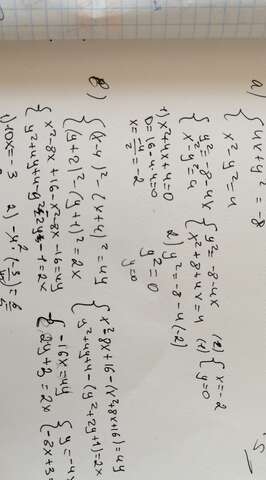 а) { 4x + y² = -8
x² - y² = 4
{ y² = -8 - 4x
x² - y² = 4
{ y² = -8 - 4x
x² + 8 + 4x = 4
1) x² + 4x + 4 = 0
D = 16 - 4·4 = 0
x = -4/2 = -2
2) y² = -8 - 4·(-2)
y² = 0
y = 0
{ x = -2
y = 0
в) { (x - 4)² - (x + 4)² = 4y
(y + 2)² - (y + 1)² = 2x
{ x² - 8x + 16 - (x² + 8x + 16) = 4y
y² + 4y + 4 - (y² + 2y + 1) = 2x
{ x² - 8x + 16 - x² - 8x - 16 = 4y
y² + 4y + 4 - y² - 2y - 1 = 2x
{ -16x = 4y
2y + 3 = 2x
{ y = -4
-8x + 3 =
1) -10x = -3